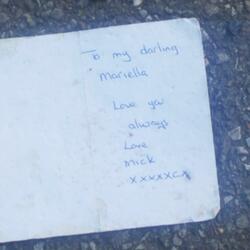 To my darling
Mariella
Love you
always
Love
Mick
xxxxxcx